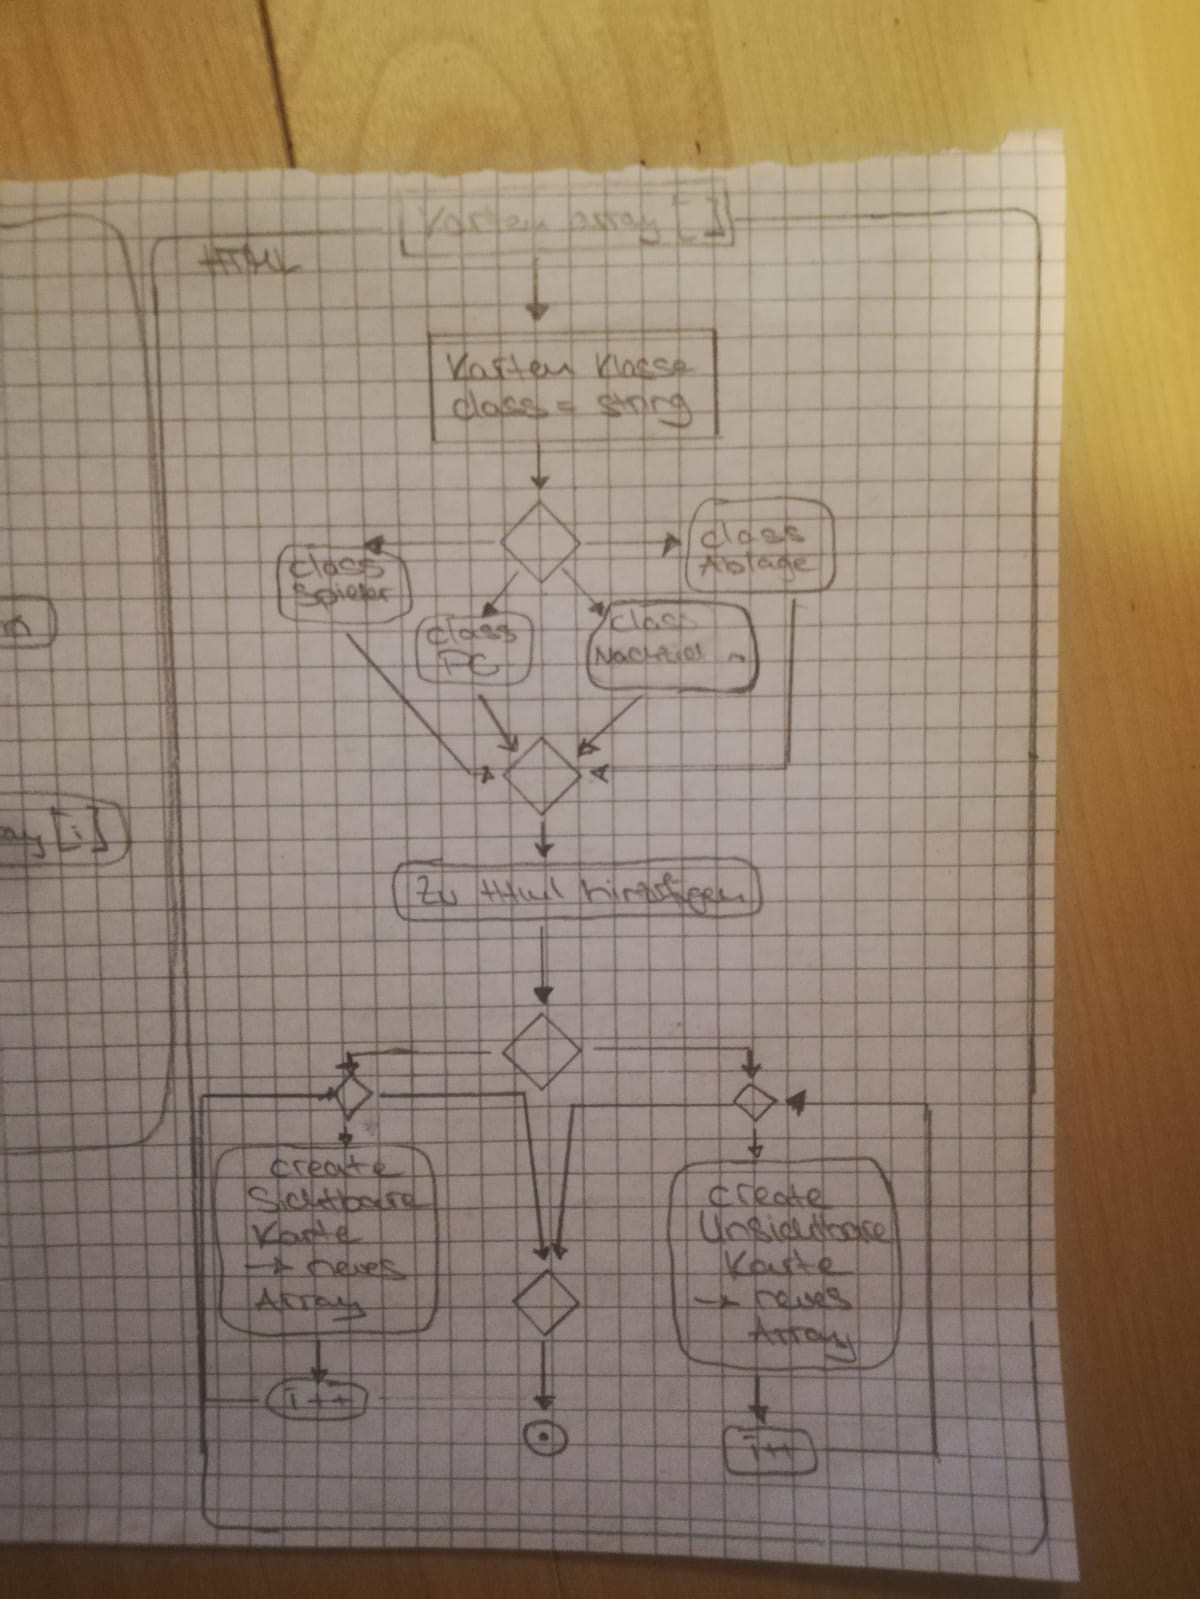 Karten array []
HTML
Karten Klasse
class = string
class
Ablage
class
Spieler
class
PC
class
Zu Html hinzufügen
ay [i]
create
Sichtbare
Karte
→ neues
Array
i++
create
Unsichtbare
Karte
→ neues
Array
i++